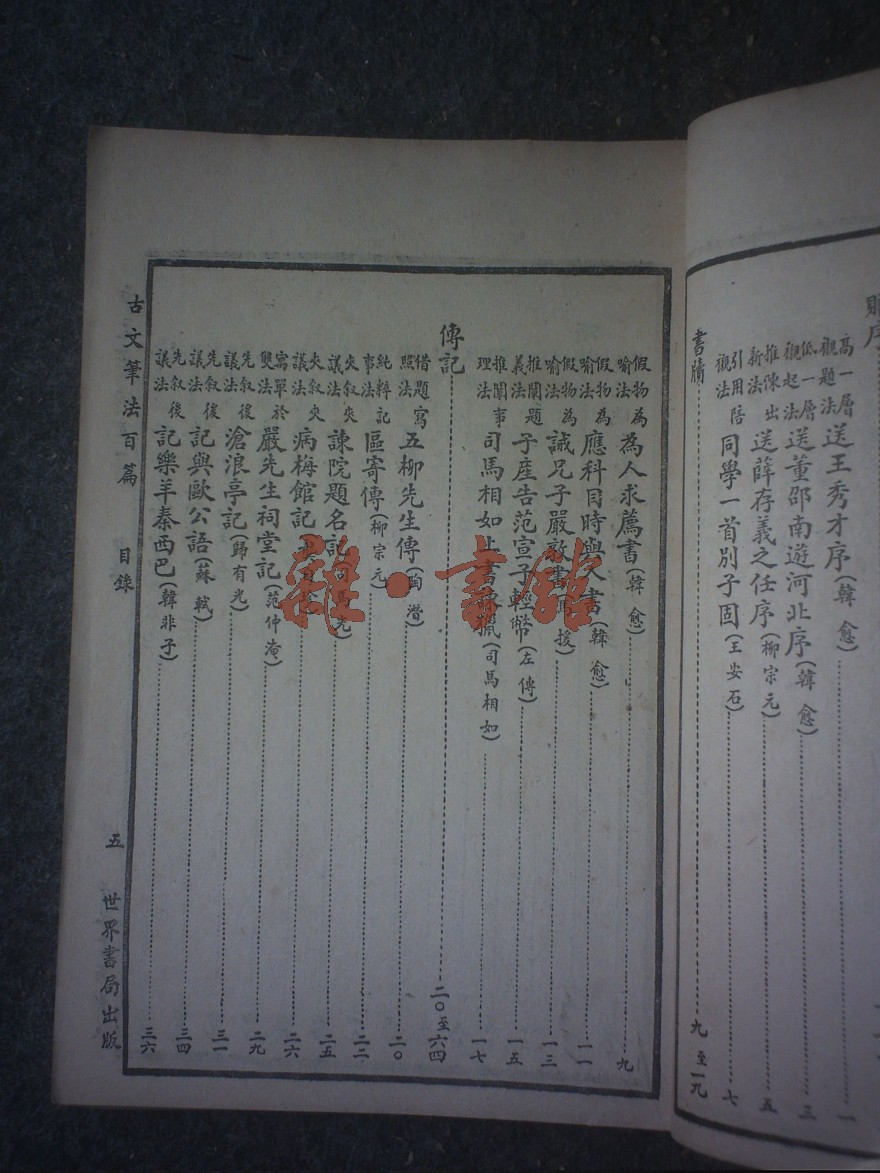 贈序
高一層觀題法 送王秀才序(韓愈) 一
低一層觀起法 送董邵南遊河北序(韓愈) 三
推陳出新法 送薛存義之任序(柳宗元) 五
引用陪襯法 同學一首別子固(王安石) 七
書牘 九至一九
假物為喻法 為人求薦書(韓愈) 九
假物為喻法 應科目時與人書(韓愈) 一一
假物為喻法 誡兄子嚴敦書 援) 一三
推闡題義法 子產告范宣子輕幣(左傳) 一五
推闡事理法 司馬相如上書 獵(司馬相如) 一七
傳記 二〇至六四
借題寫照法 五柳先生傳(陶潛) 二〇
純粹記事法 區寄傳(柳宗元) 二二
夾叙夾議法 諫院題名記(司馬光) 二五
夾叙夾議法 病梅館記 二六
寓單於雙法 嚴先生祠堂記(范仲淹) 二九
先叙後議法 滄浪亭記(歸有光) 三一
先叙後議法 記與歐公語(蘇軾) 三四
先叙後議法 記樂羊秦西巴(韓非子) 三六
古文筆法百篇 目錄 五 世界書局出版
雜·書館